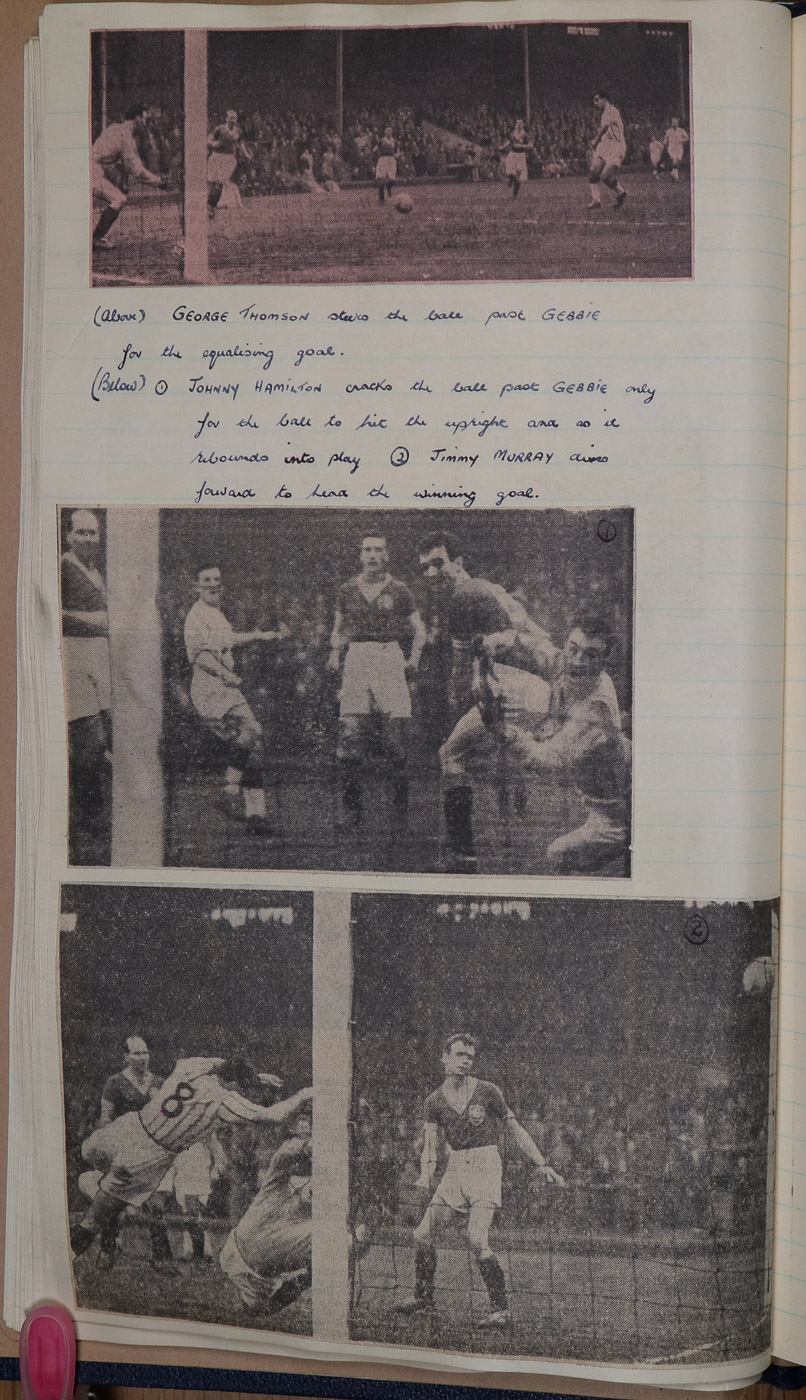 (Above) GEORGE THOMSON steers the ball past GEBBIE
for the equalising goal.
(Below) ① JOHNNY HAMILTON cracks the ball past GEBBIE only
for the ball to hit the upright and as it
rebounds into play ② JIMMY MURRAY dives
forward to head the winning goal.
①
②
8